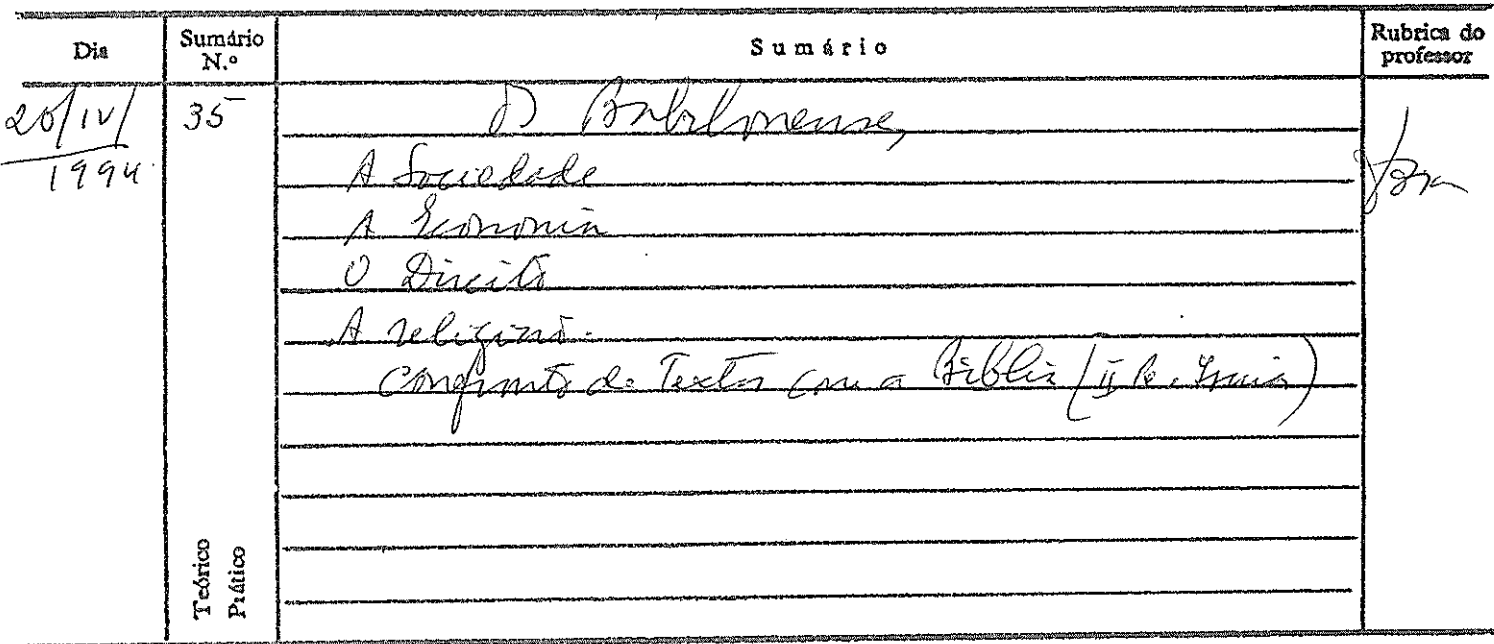 Dia
Sumário N.º
Sumário
Rubrica do professor
1994
35
Os Babilonenses
A Sociedade
A Economia
O Direito
A religião.
Confronto de Textos com a Bíblia (II
Teórico
Prático